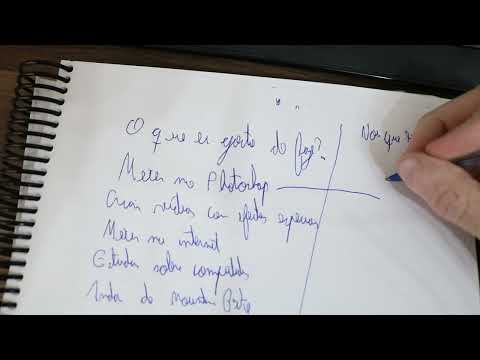 O que eu gosto de fazer?
Mexer no Photoshop
Criar vídeos com efeitos especiais
Mexer na internet
Estudar sobre computador
Andar de Mountain
Nas que